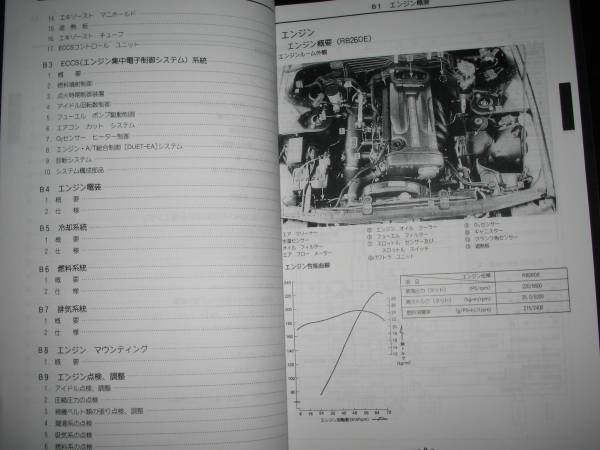 14 エキゾースト マニホールド
15 遮 熱 板
16 エキゾースト チューブ
17 ECCSコントロール ユニット
B3 ECCS(エンジン集中電子制御システム)系統
1. 概 要
2. 燃料噴射制御
3. 点火時期制御装置
4. アイドル回転数制御
5. フューエル ポンプ駆動制御
6. エアコン カット システム
7. O₂センサー ヒーター制御
8. エンジン・A/T総合制御[DUET-EA]システム
9. 診断システム
10. システム構成部品
B4 エンジン電装
1 概 要
2 仕 様
B5 冷却系統
1. 概 要
2. 仕 様
B6 燃料系統
1 概 要
2 仕 様
B7 排気系統
1 概 要
2 仕 様
B8 エンジン マウンティング
1. 概 要
B9 エンジン点検、調整
1. アイドル点検、調整
2. 圧縮圧力の点検
3. 補機ベルト類の張り点検、調整
4. 潤滑系の点検
5. 吸気系の点検
6. 燃料系の点検
B1 エンジン概要
エンジン
エンジン概要(RB26DE)
エンジンルーム外観
エア クリーナー
水温センサー
オイル フィルター
エア フロー メーター
エンジン オイル クーラー
フューエル フィルター
スロットル センサー及び
スロットル スイッチ
パワトラ ユニット
O₂センサー
キャニスター
クランク角センサー
遮熱板
エンジン性能曲線
項目 エンジン仕様 RB26DE
最高出力(ネット) (PS/rpm) 220/5600
最大トルク(ネット) (kg-m/rpm)
燃料消費率 (g/PS-h)(/rpm) 215/2400
エンジン回転数